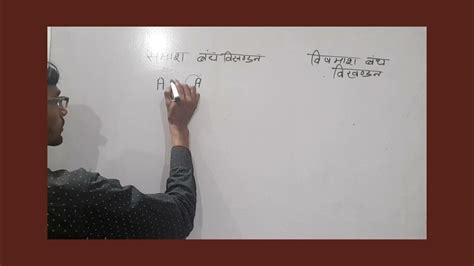 समांश बंध विखण्डन
विषमांश बंध
विखण्डन
A A